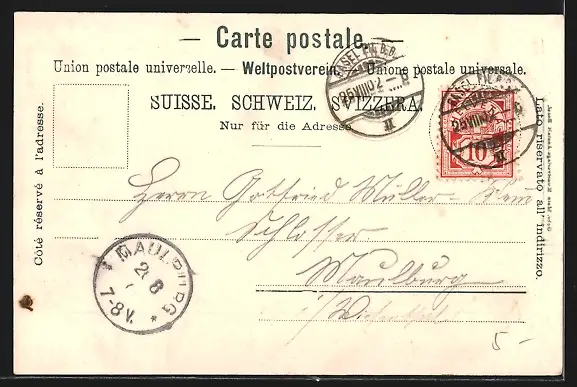 — Carte postale. —
Union postale universelle. — Weltpostverein. — Unione postale universale.
SUISSE. SCHWEIZ. SVIZZERA.
Nur für die Adresse.
Côté réservé à l'adresse.
Lato riservato all' indirizzo.
BASEL FIL. B.B.
25 VIII 02
10
Herrn Gottfried Müller-
Schlosser
Maulburg
i/ Wiesenthal
MAULBURG
26 8
7-8 V.
*
5-